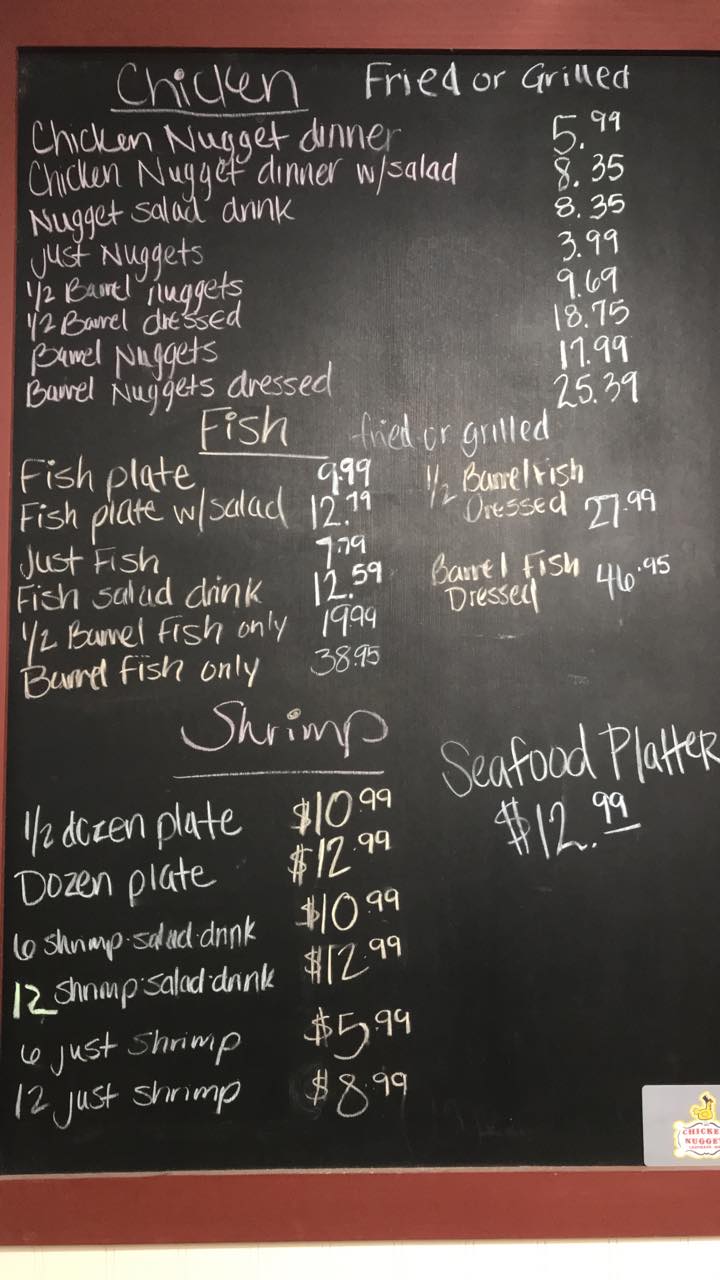 Chicken Fried or Grilled
Chicken Nugget dinner 5.99
Chicken Nugget dinner w/salad 8.35
Nugget salad drink 8.35
Just Nuggets 3.99
1/2 Barrel nuggets 9.69
1/2 Barrel dressed 18.75
Barrel Nuggets 17.99
Barrel Nuggets dressed 25.39
Fish fried or grilled
Fish plate 9.99
Fish plate w/salad 12.79
Just Fish 7.79
Fish salad drink 12.59
1/2 Barrel Fish only 19.99
Barrel fish only 38.95
1/2 Barrel Fish
Dressed 27.99
Barrel Fish
Dressed 46.95
Shrimp
1/2 dozen plate $10.99
Dozen plate $12.99
6 shrimp.salad.drink $10.99
12 shrimp.salad.drink $12.99
6 just shrimp $5.99
12 just shrimp $8.99
Seafood Platter
$12.99
CHICKE
NUGGE